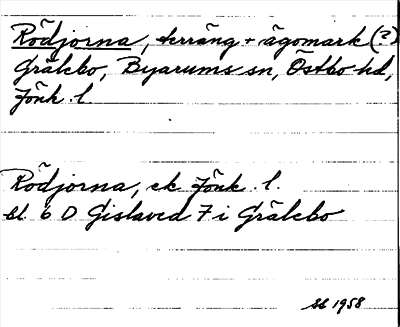 Rödjorna, terräng + ägomark (?)
Grälebo, Byarums sn, Östbo hd,
Jönk. l.
Rödjorna, ek Jönk. l.
bl 6 D Gislaved 7 i Grälebo
1958